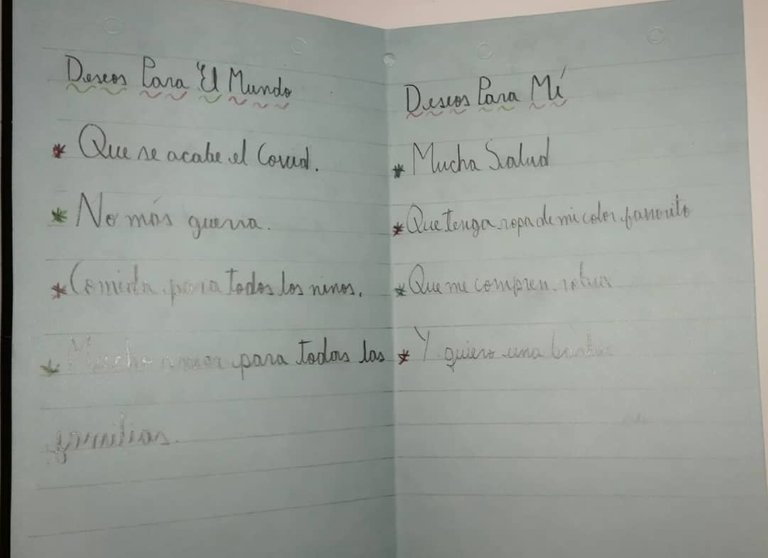 Deseos Para El Mundo
* Que se acabe el Covid.
* No más guerra.
* Comida para todos los niños.
* Mucho amor para todas las
familias.
Deseos Para Mí
* Mucha Salud
* Que tenga ropa de mi color favorito
* Que me compren
* Y quiero una